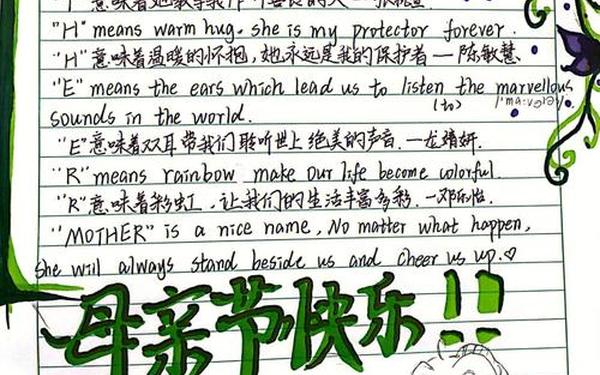 "H" means warm hug. she is my protector forever.
"H"意味着温暖的怀抱,她永远是我的保护者—陈敏慧
"E" means the ears which lead us to listen the marvellous
(to)
sounds in the world.
"E"意味着双耳带我们聆听世上绝美的声音.—龙婧妍.
"R" means rainbow make our life become colorful.
"R"意味着彩虹,让我们的生活丰富多彩.—邓怡
"MOTHER" is a nice name, No matter what happen,
she will always stand beside us and cheer us up.♡
母亲节快乐!!